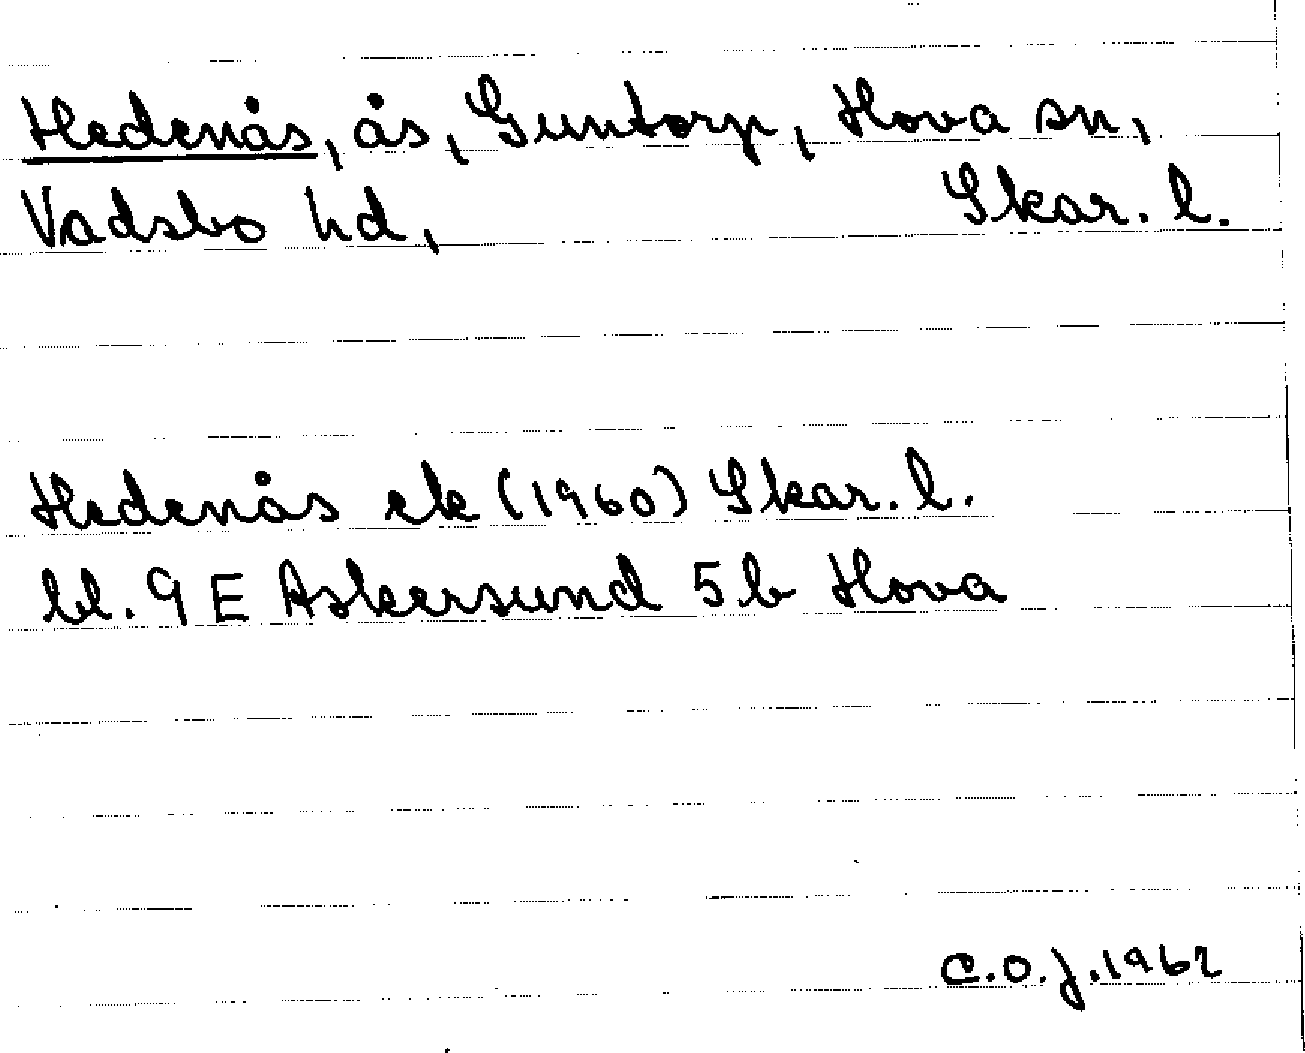 Hedenås, ås, Guntorp, Hova sn,
Vadsbo hd, Skar. l.
Hedenås ek (1960) Skar. l.
bl. 9 E Askersund 5 b Hova
C.O.J. 1962